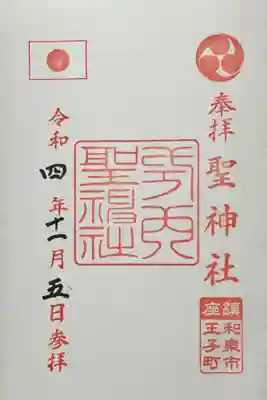 奉拝
聖神社
鎮座
和泉市
王子町
聖神社
令和四年十一月五日参拝